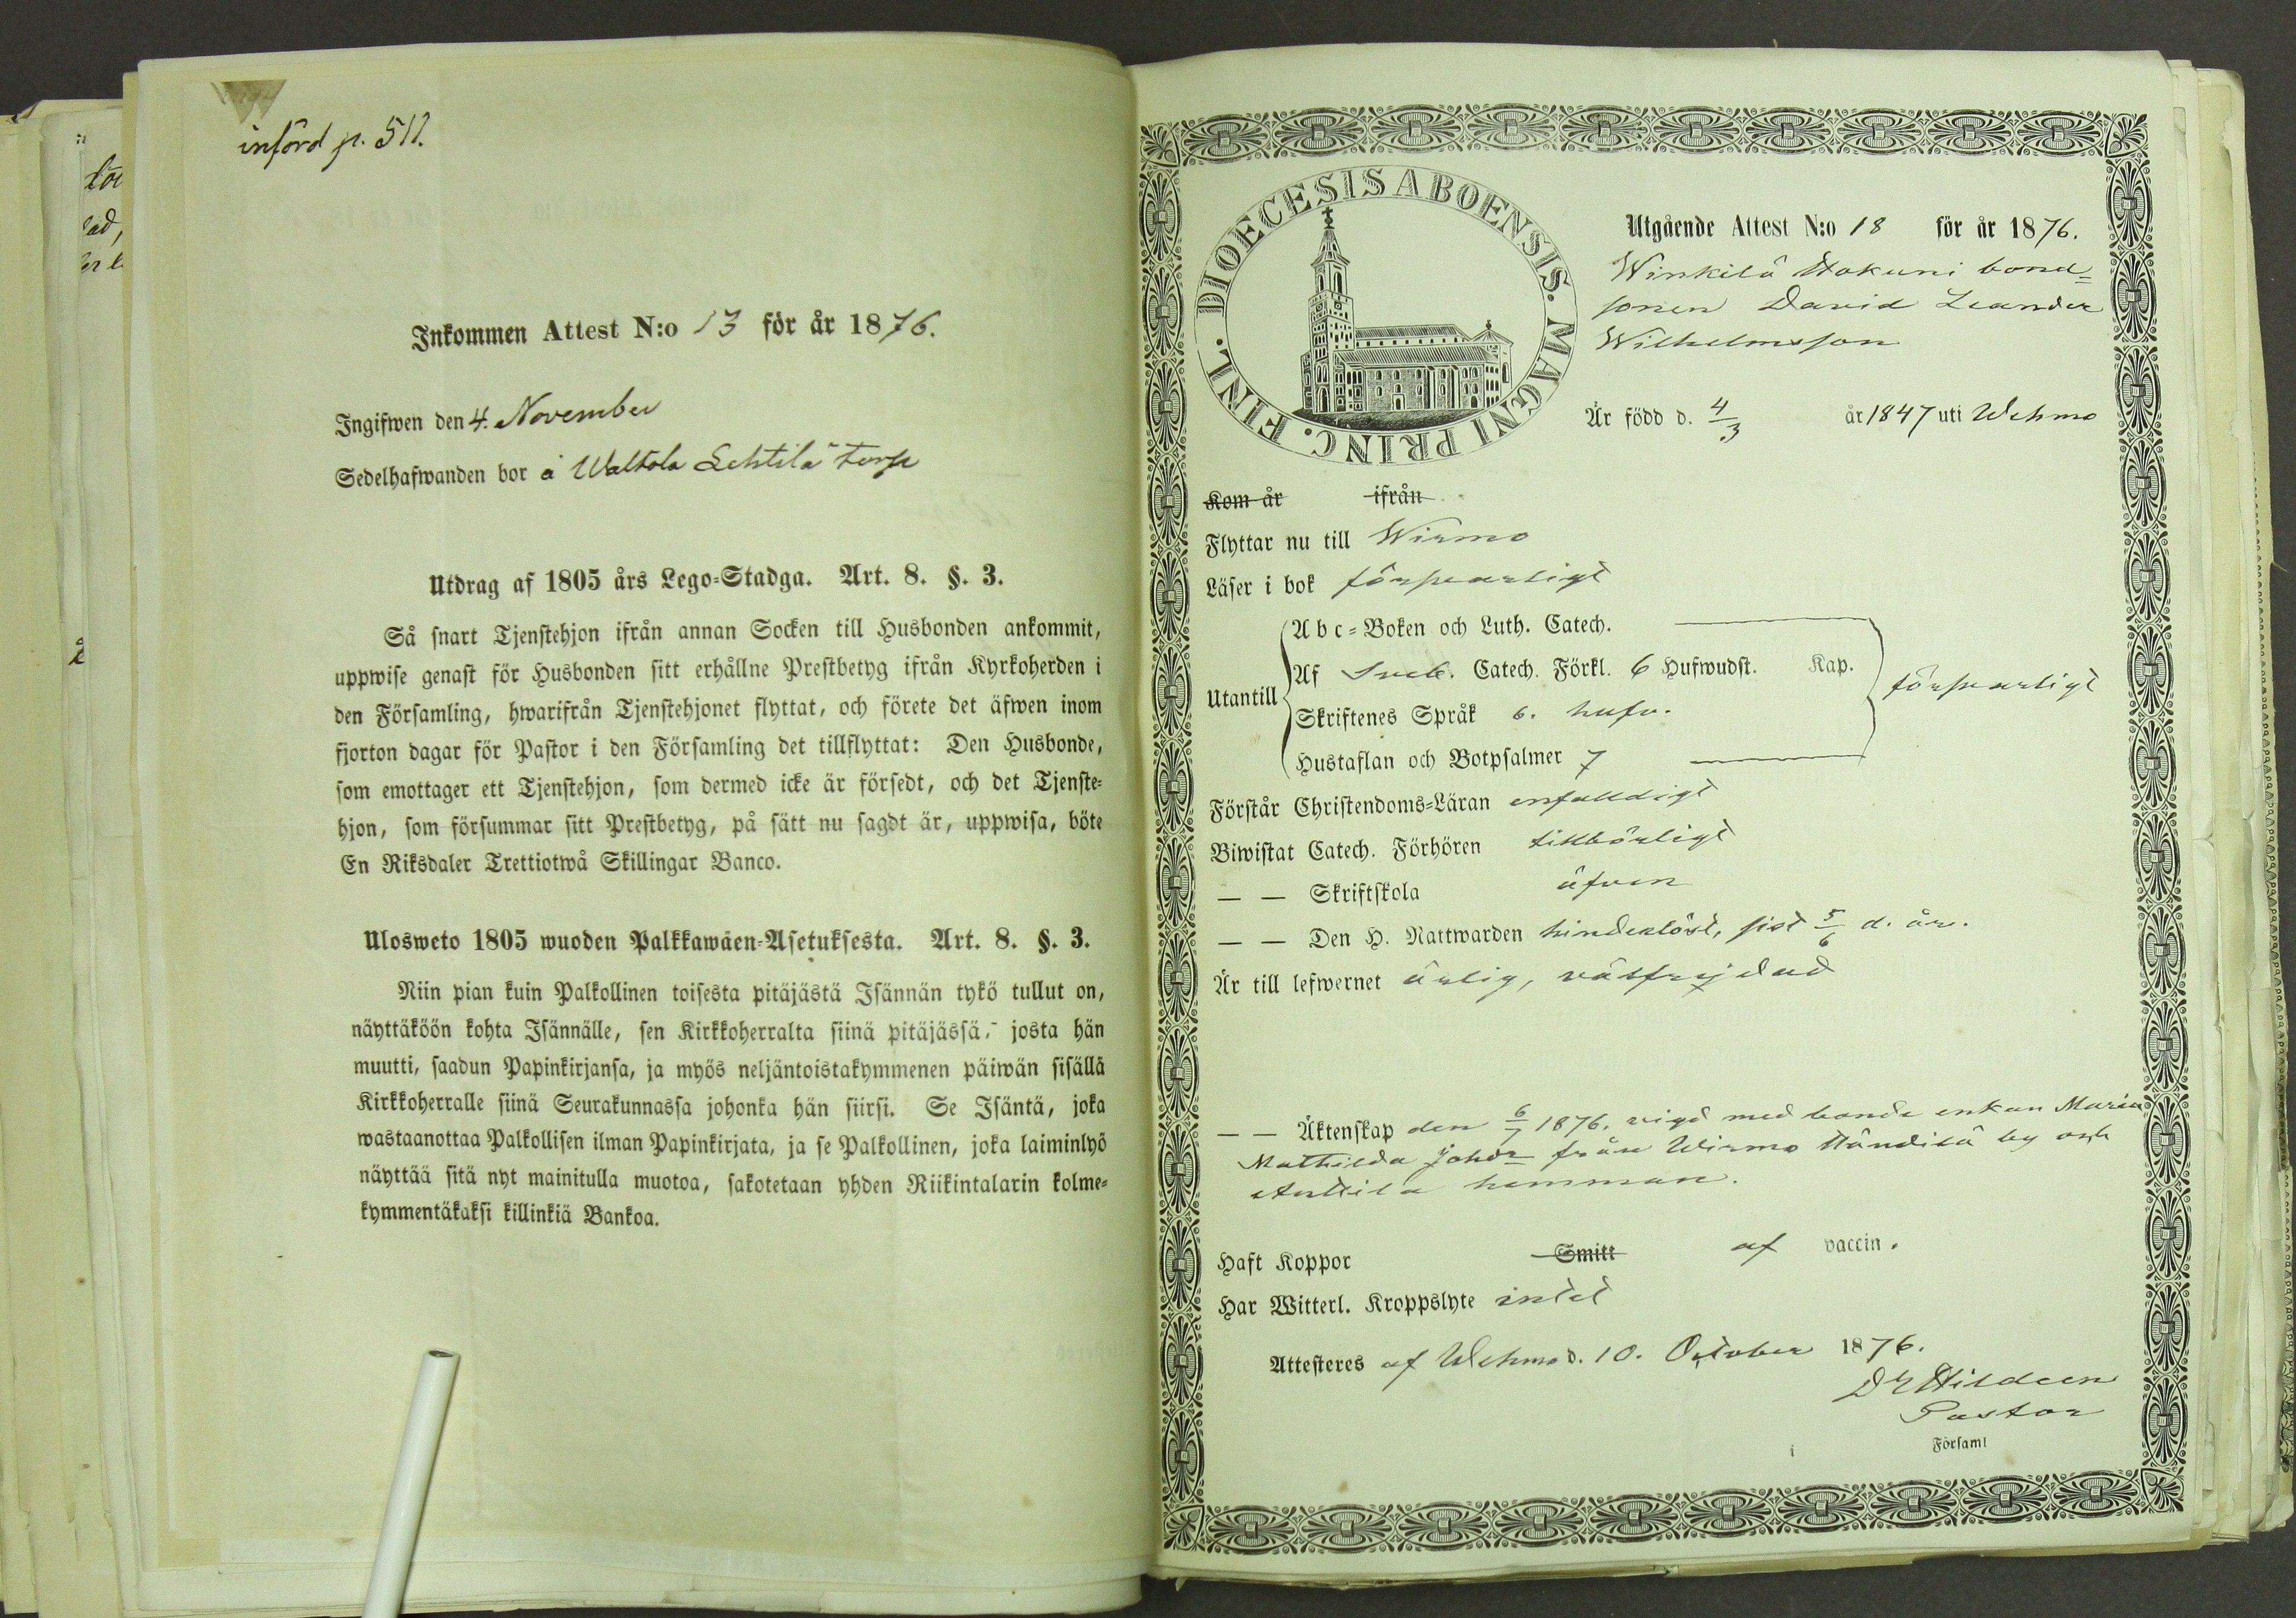 införd p. 511.
Inkommen Attest N:o 13 för år 1876.
Ingifwen den 4. November
Sedelhafwanden bor å Waltola Lehtilä torp
Utdrag af 1805 års Lego-Stadga. Art. 8. §. 3.
Så snart Tjenstehjon ifrån annan Socken till Husbonden ankommit,
uppwise genast för Husbonden sitt erhållne Prestbetyg ifrån Kyrkoherden i
den Församling, hwarifrån Tjenstehjonet flyttat, och förete det äfwen inom
fjorton dagar för Pastor i den Församling det tillflyttat: Den Husbonde,
som emottager ett Tjenstehjon, som dermed icke är försedt, och det Tjenste-
hjon, som försummar sitt Prestbetyg, på sätt nu sagdt är, uppwisa, böte
En Riksdaler Trettiotwå Skillingar Banco.
Ulosweto 1805 wuoden Palkkawäen-Asetuksesta. Art. 8. §. 3.
Niin pian kuin Palkollinen toisesta pitäjästä Isännän tykö tullut on,
näyttäköön kohta Isännälle, sen Kirkkoherralta siinä pitäjässä, josta hän
muutti, saadun Papinkirjansa, ja myös neljäntoistakymmenen päiwän sisällä
Kirkkoherralle siinä Seurakunnassa johonka hän siirsi. Se Isäntä, joka
wastaanottaa Palkollisen ilman Papinkirjata, ja se Palkollinen, joka laiminlyö
näyttää sitä nyt mainitulla muotoa, sakotetaan yhden Riikintalarin kolme-
kymmentäkaksi killinkiä Bankoa.
DIOECESIS ABOENSIS. MAGNI PRINC. FINL.
Utgående Attest N:o 18 för år 1876.
Winkilä Hakuni bond-
sonen David Leander
Wilhelmsson
Är född d. 4/3 år 1847 uti Wehmo
Kom år ifrån
Flyttar nu till Wirmo
Läser i bok försvarligt
Abc-Boken och Luth. Catech.
Utantill
Af Sveb. Catech. Förkl. 6 Hufwudst. Kap.
försvarligt
Skriftenes Språk 6. hufv.
Hustaflan och Botpsalmer 7
Förstår Christendoms-Läran enfalldigt
Biwistat Catech. Förhören tillbörligt
— — Skriftskola äfven
— — Den H. Nattwarden hinderlöst, sist 5/6 d. år.
Är till lefwernet ärlig, välfrejdad
— — Äktenskap den 6/7 1876. vigd med bonde enkan Maria
Mathilda Johdr från Wirmo Händilä by och
Anttila hemman.
Haft Koppor Smitt af vaccin.
Har Witterl. Kroppslyte intet
Attesteres af Wehmo d. 10. October 1876.
Pastor
i Församl